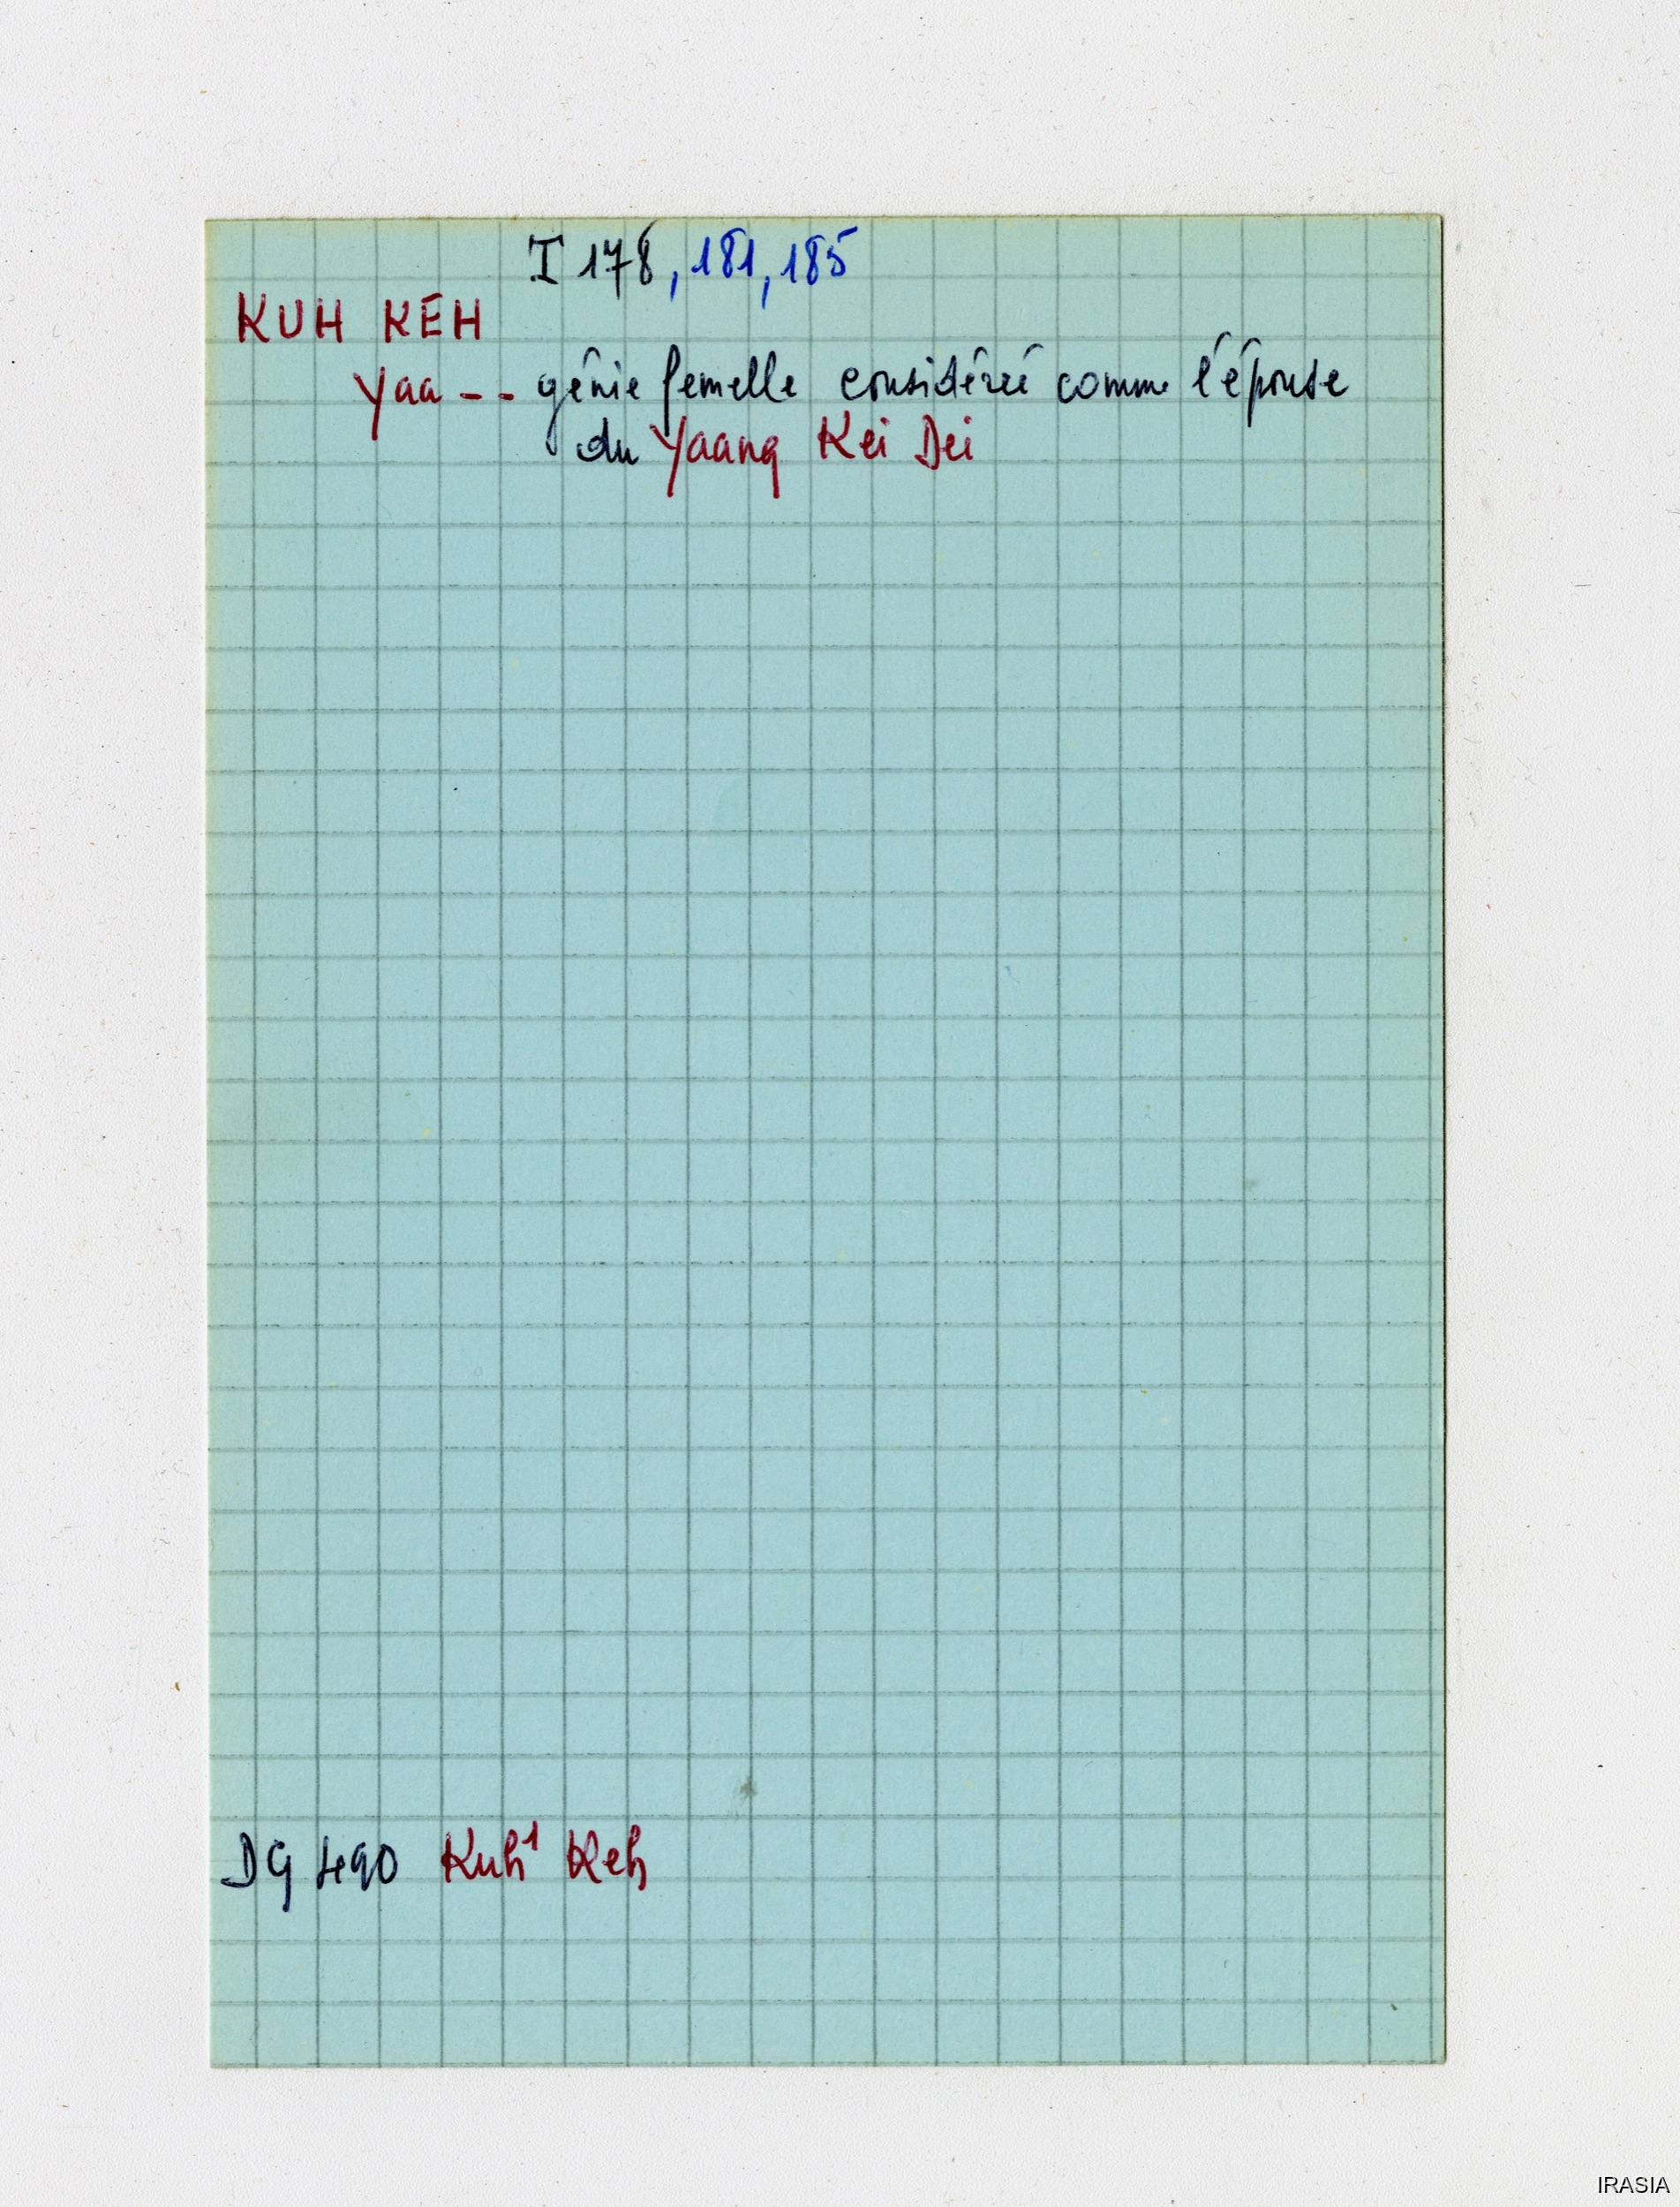 I 178, 181, 185
KUH KEH
Yaa -- génie femelle considéré comme l'épouse
du Yaang Kei Dei
DG 490 Kuh¹ Keh
IRASIA